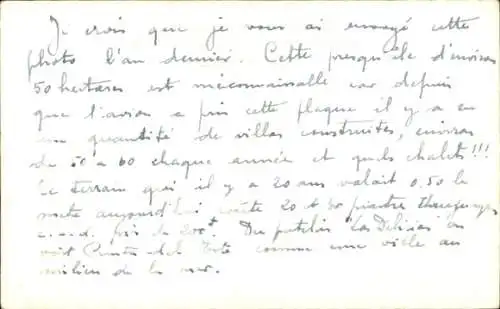 Je crois que je vous ai envoyé cette
photo l'an dernier. Cette presqu'île d'environ
50 hectares est méconnaissable car depuis
que l'avion a pris cette plaque il y a eu
une quantité de villas construites, environ
de 50 à 60 chaque année et quels chalets!!!
Le terrain qui il y a 20 ans valait 0,50 le
mètre aujourd'hui coûte 20 à 30 piastres
c.a.d. de 200 f. Du patelin "Las Delicias" on
voit Punta del Este comme une ville au
milieu de la mer.